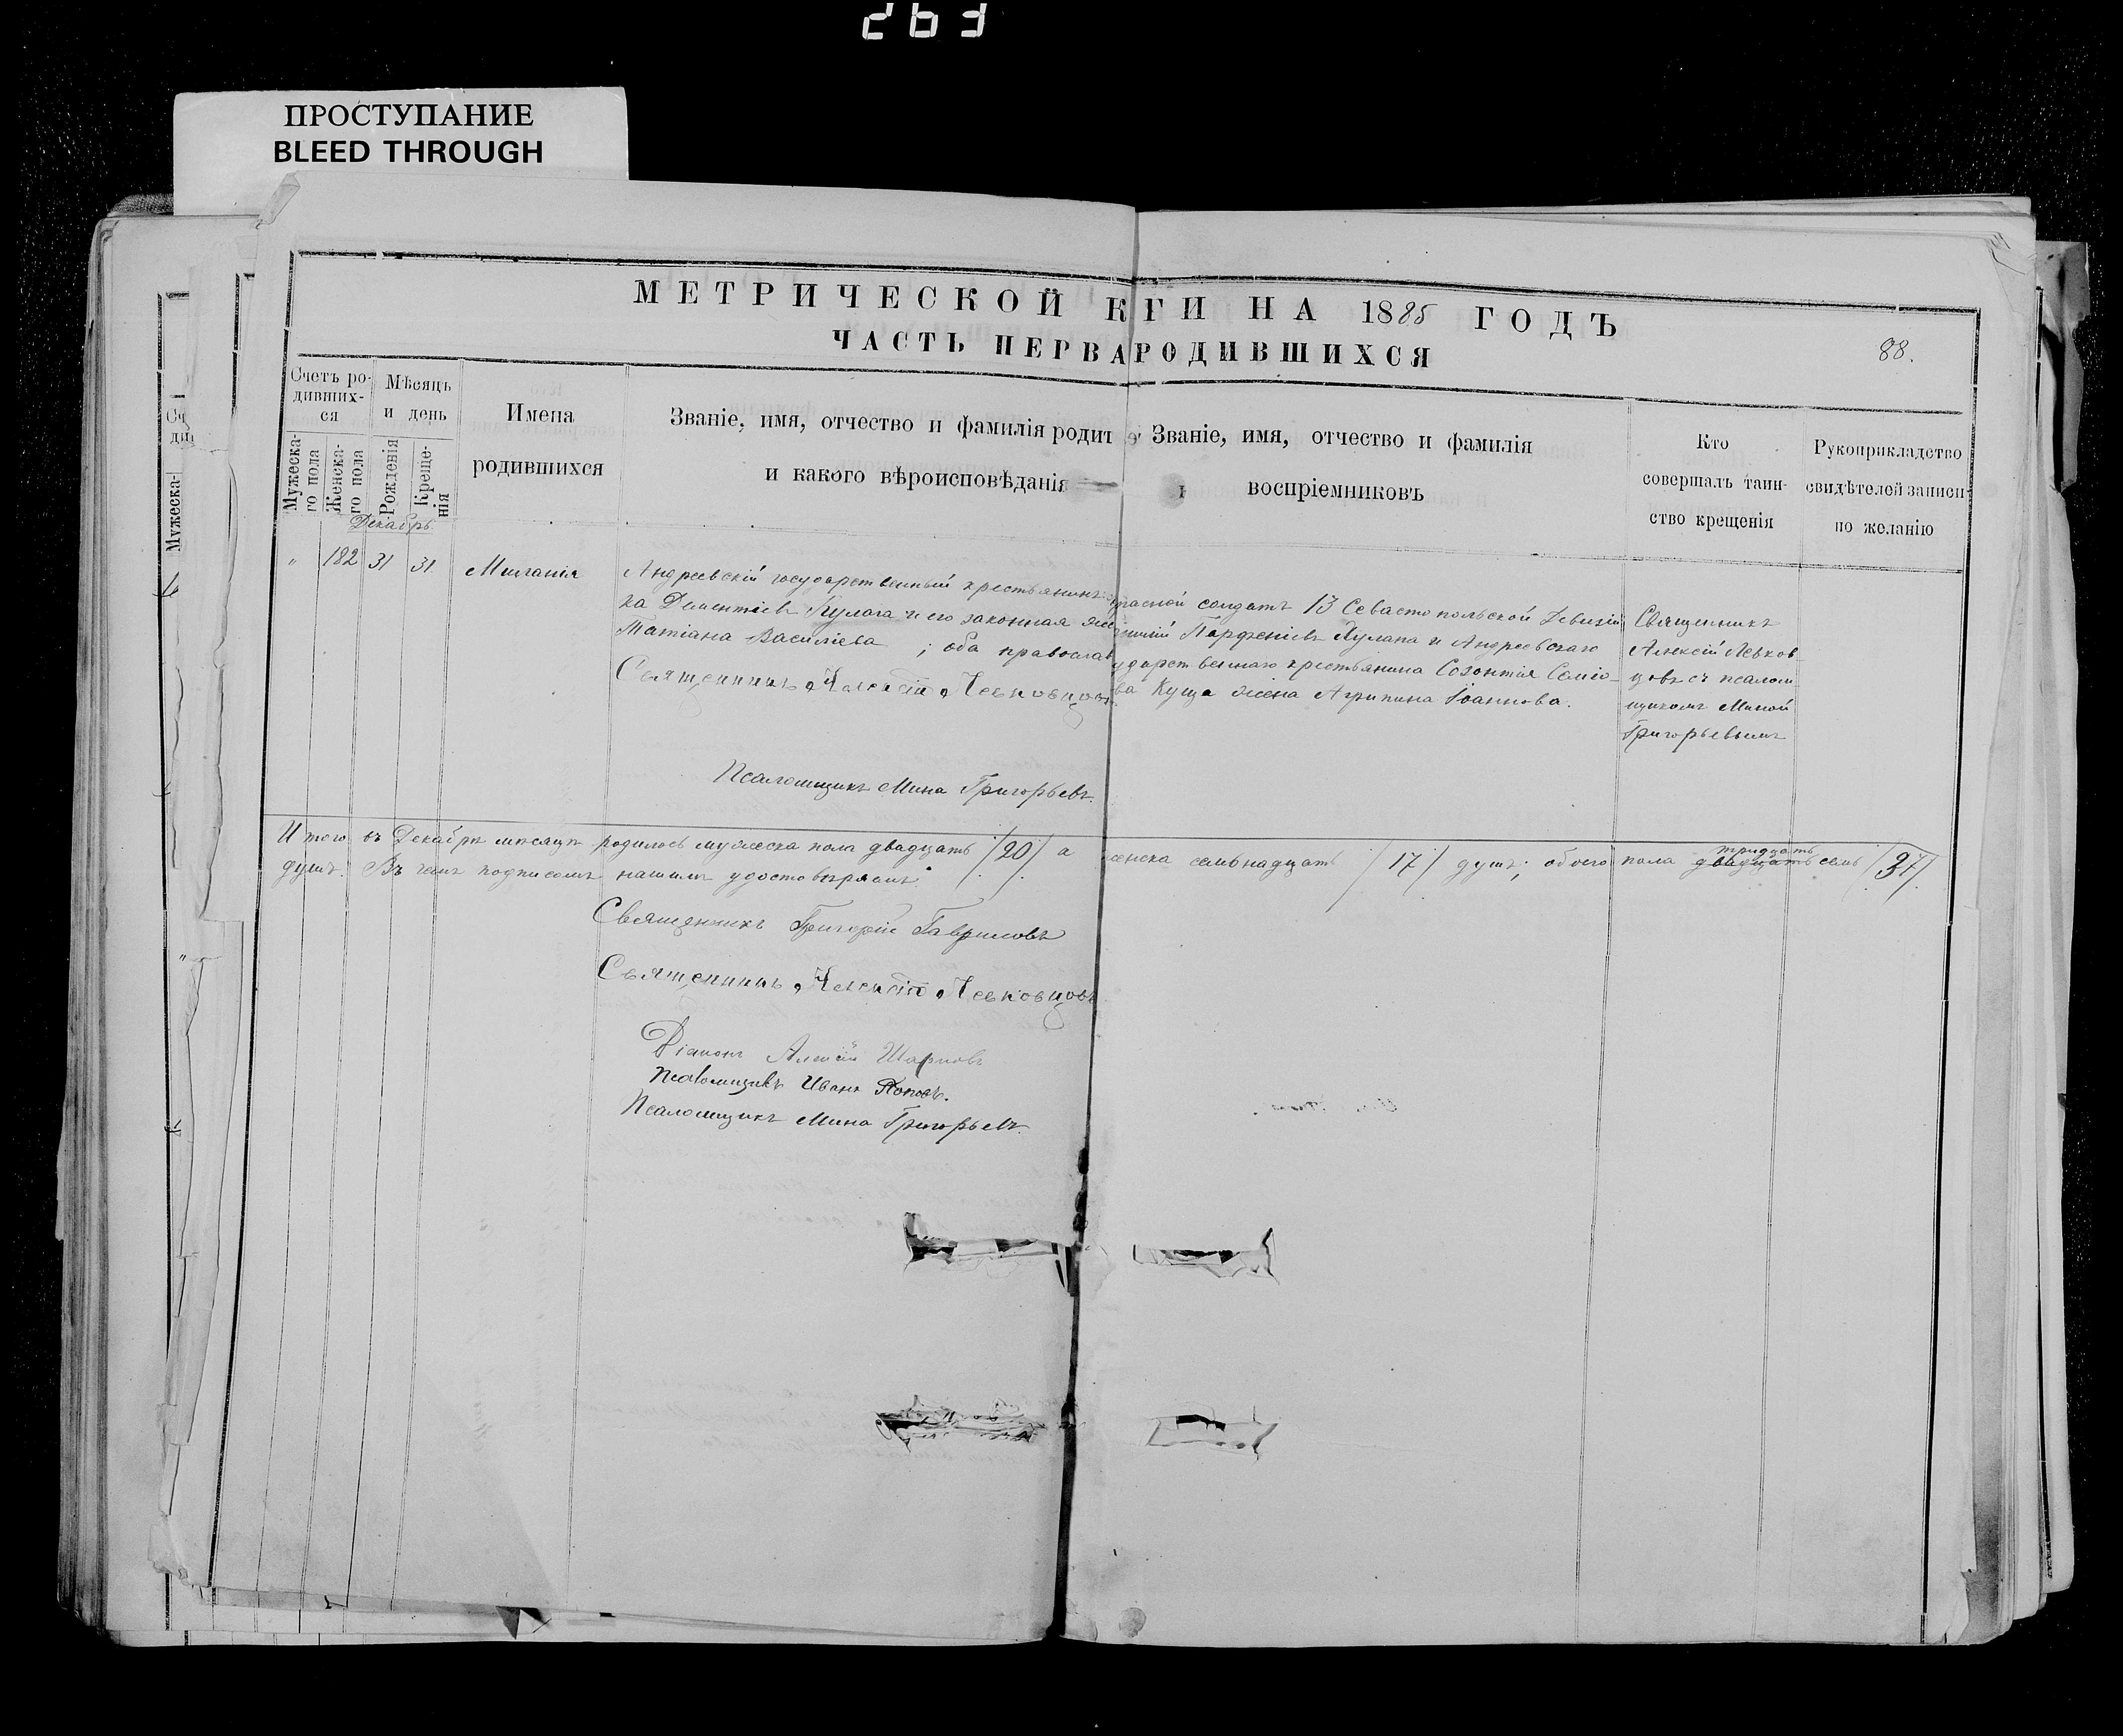 263
ПРОСТУПАНИЕ
BLEED THROUGH
МЕТРИЧЕСКОЙ К ГИ НА 1885 ГОДЪ
ЧАСТЬ ПЕРВА РОДИВШИХСЯ
88.
Счетъ ро-
дивших-
ся
Мужеска-
го пола
Женска-
го пола
Мѣсяцъ
и день
Рожденія
Креще-
нія
Имена
родившихся
Званіе, имя, отчество и фамилія родит
и какого вѣроисповѣданія
Званіе, имя, отчество и фамилія
воспріемниковъ
Кто
совершалъ таин-
ство крещенія
Рукоприкладство
свидѣтелей записи
по желанію
Мужеска-
Декабрь
" 182 31 31. Миланія
Андреевскій государственный крестьянинъ
ка Дементіевъ Кулага и его законная же
Татіана Василіева ; оба православ
Священникъ Алексій Левковцовъ
Псаломщикъ Мина Григорьевъ.
пасной солдатъ 13 Севастопольской Дивизіи
Парфеніевъ Кулага и Андреевскаго
ударственнаго крестьянина Созонтія Семіо-
ва Куща жена Агрипина Іоаннова.
Священникъ
Алексій Левков-
цовъ съ псалом
щикомъ Миной
Григорьевымъ
Итого въ Декабрѣ мѣсяцѣ родилось мужеска пола двадцать /20/ а женска семьнадцать /17/ душъ; обоего пола двадцать тридцать семь /37/
душъ. Въ чемъ подписомъ нашимъ удостовѣряемъ:
Священникъ Григорій Гавриловъ
Священникъ Алексій Левковцовъ
Діаконъ Алексій Шарповъ
Псаломщикъ Иванъ Поповъ.
Псаломщикъ Мина Григорьевъ.